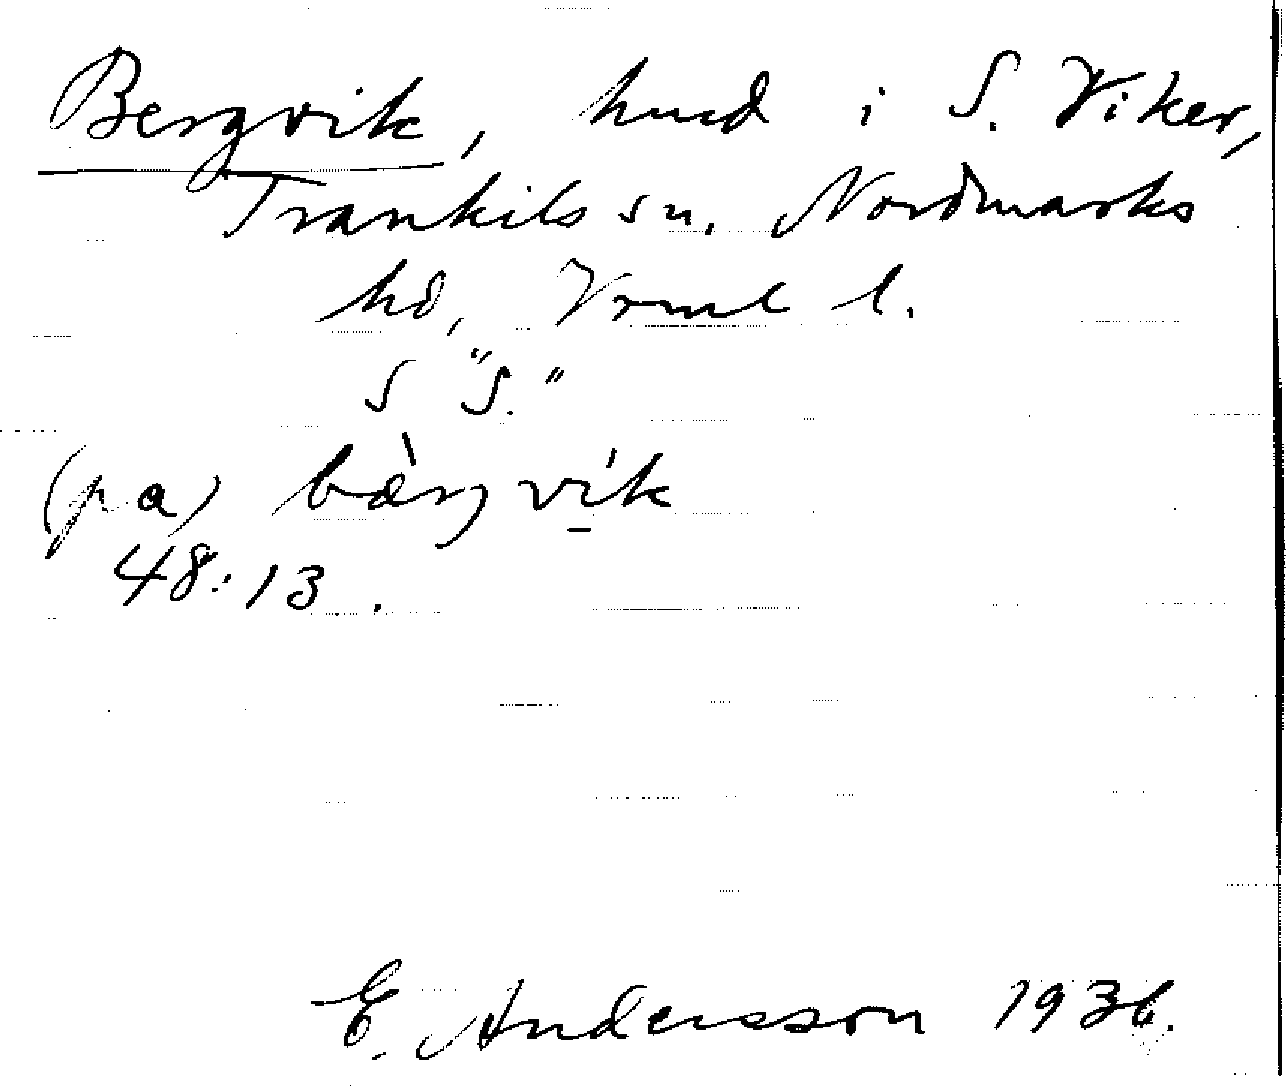 Bergvik, hmd i S. Viker,
Trankils sn, Nordmarks
hd, Vrml l.
S "S."
(på) bærgvik
48:13.
E. Andersson 1936.